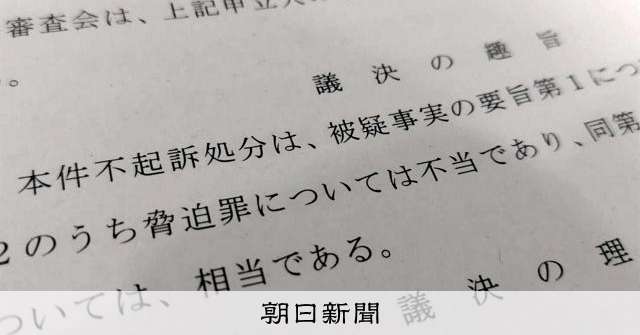 審査会は、上記申立人
。
議決の趣旨
本件不起訴処分は、被疑事実の要旨第1につ
2のうち脅迫罪については不当であり、同第
ついては、相当である。
議決の理
朝日新聞